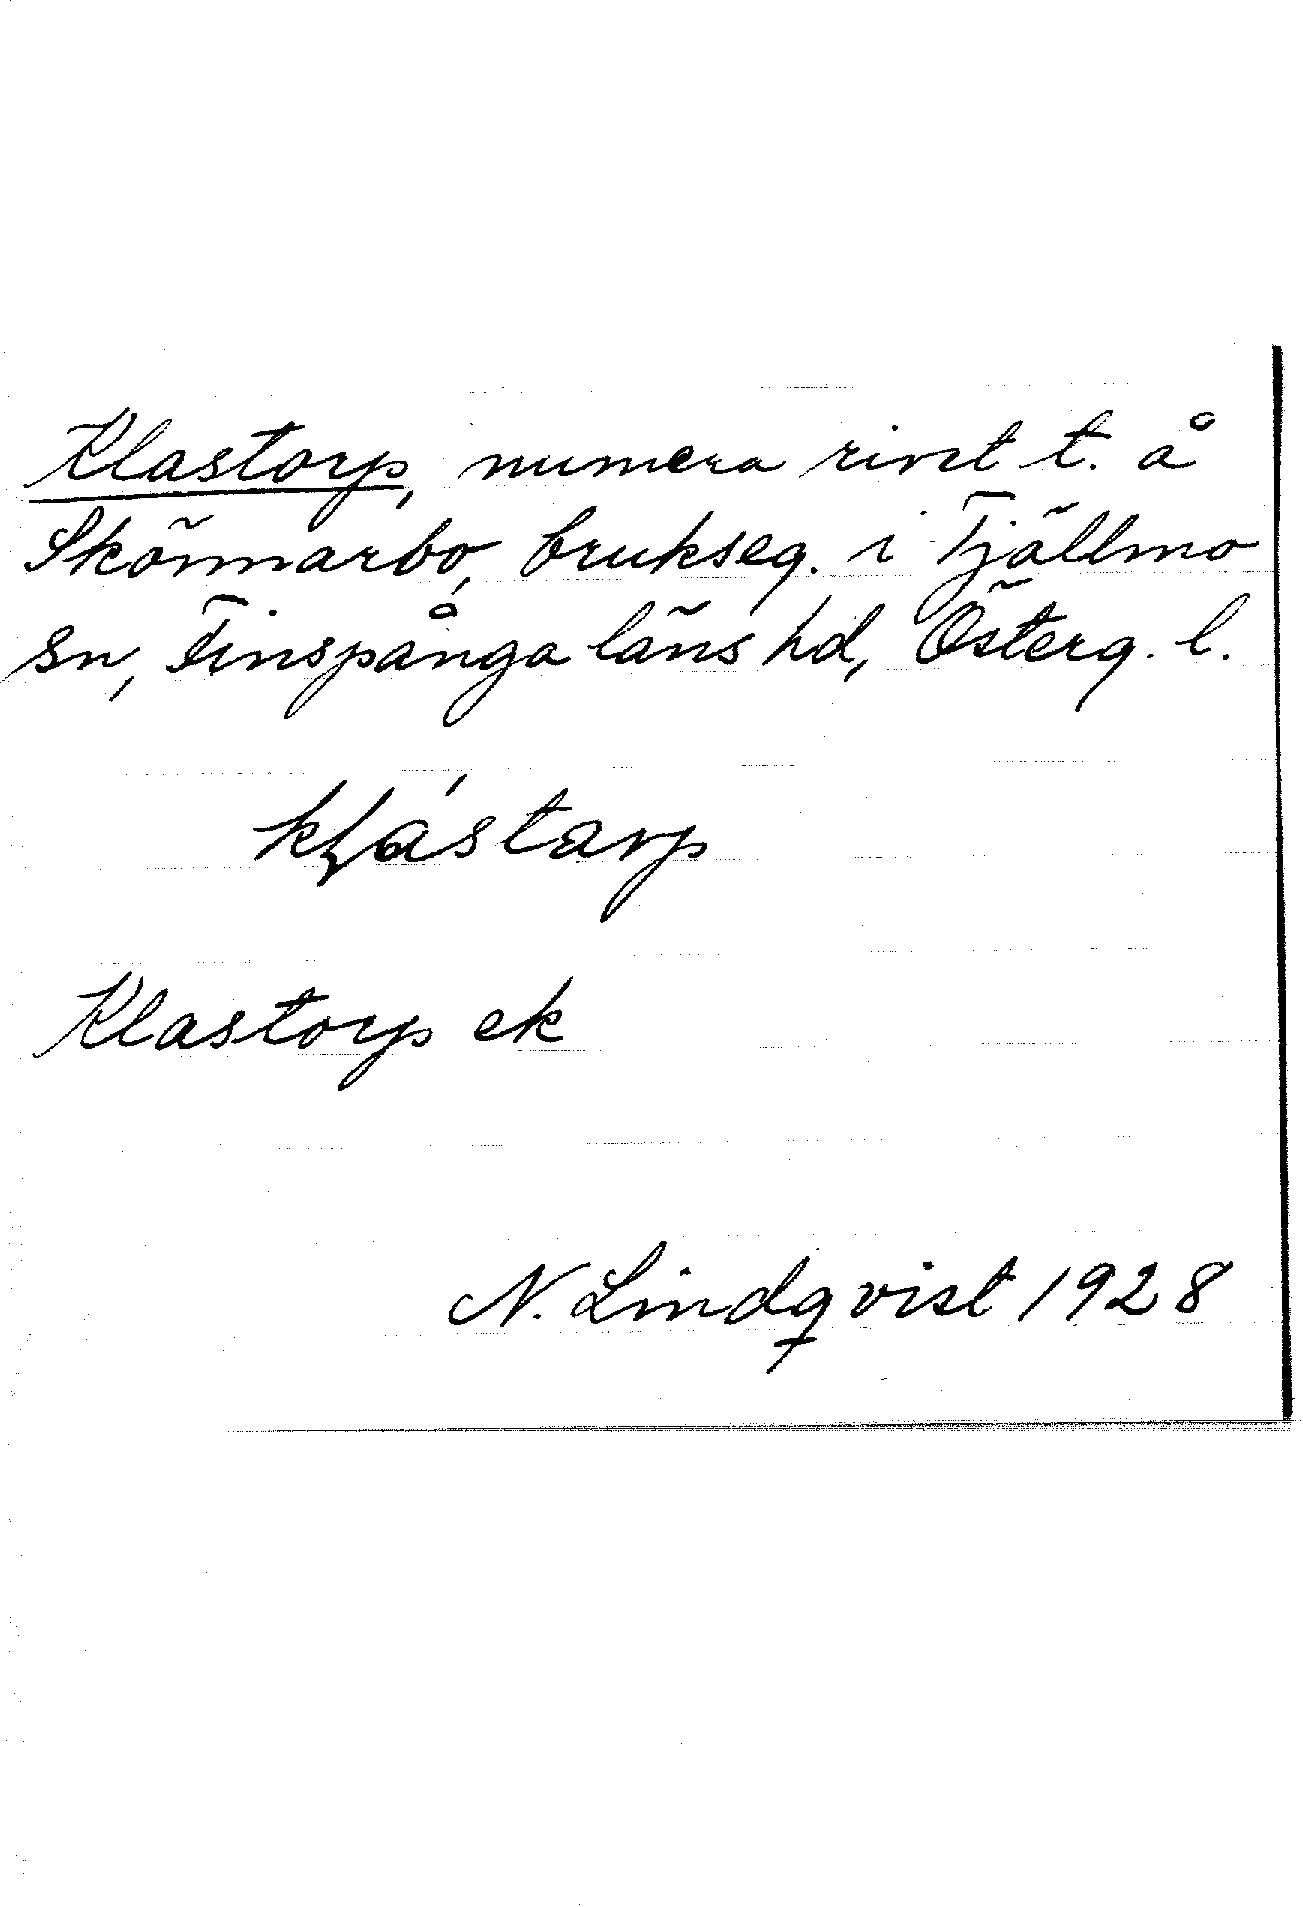 Klastorp, numera rivet t. å
Skönnarbo, brukseg. i Tjällmo
sn, Finspånga läns hd, Österg. l.
kɫástarp
Klastorp ek
N. Lindqvist 1928